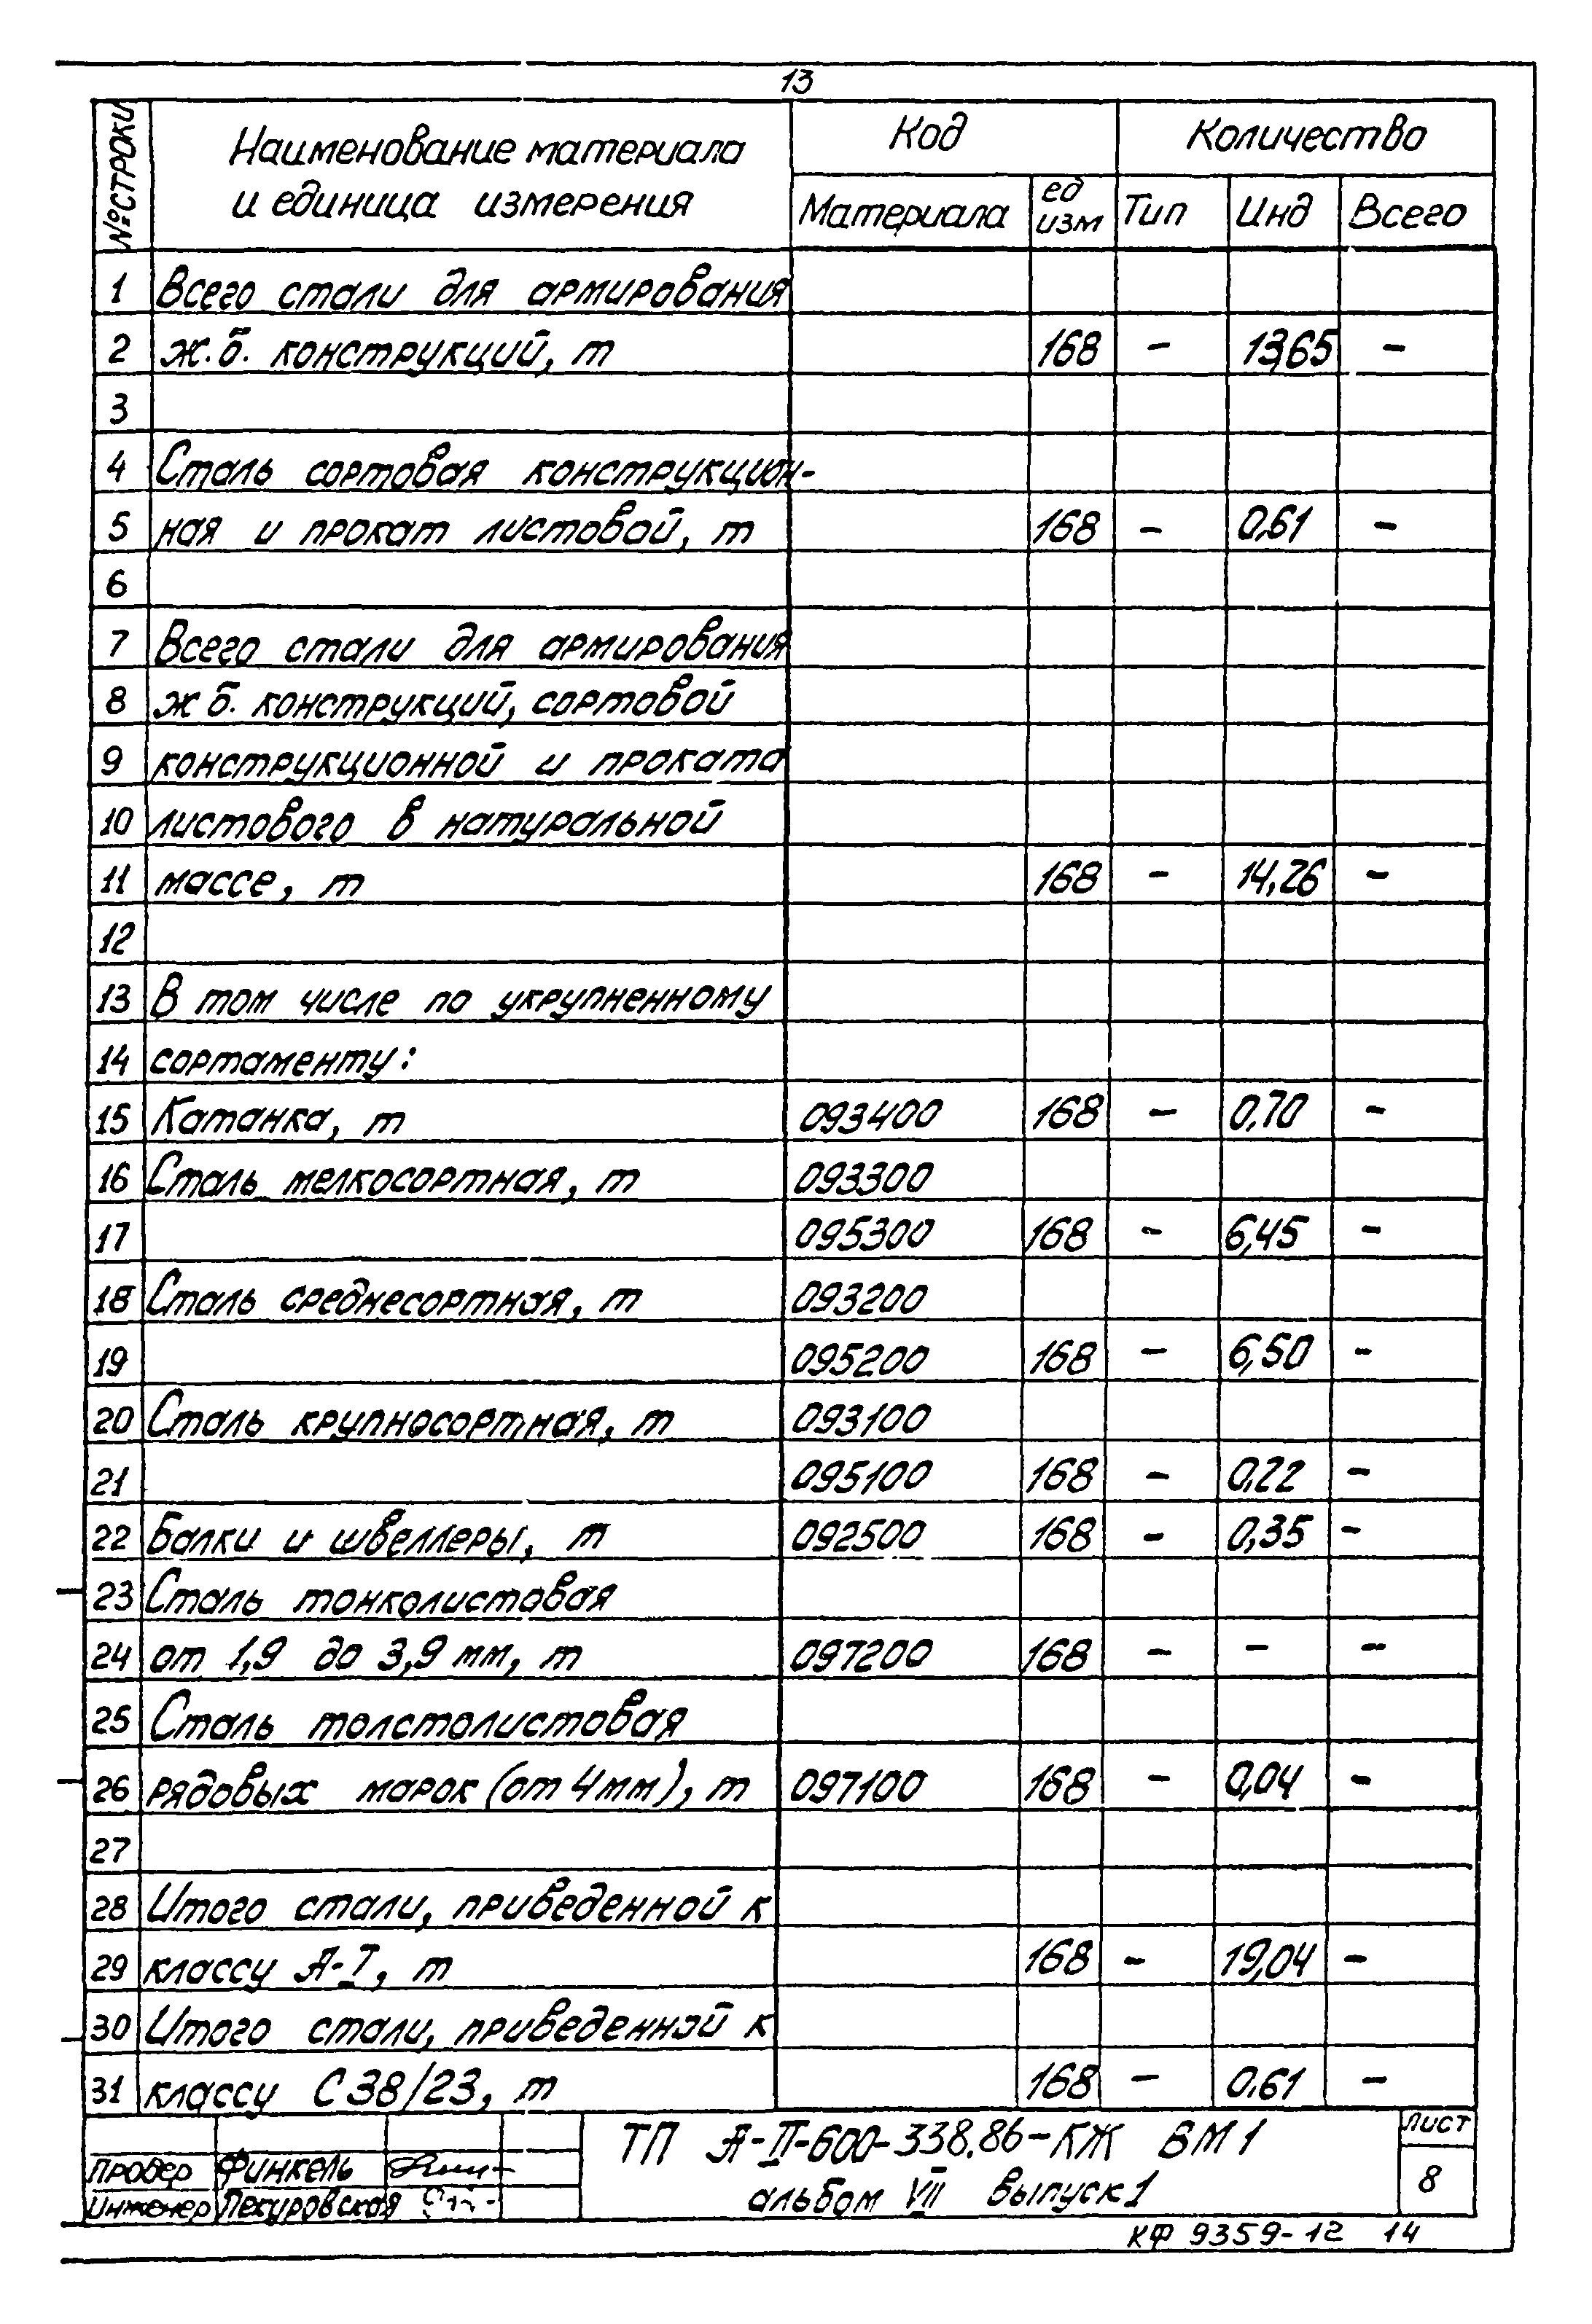 13
№ строки Наименование материала и единица измерения Код Количество
Материала ед изм Тип Инд Всего
1 Всего стали для армирования
2 ж.б. конструкций, т 168 - 13,65 -
3
4 Сталь сортовая конструкцион-
5 ная и прокат листовой, т 168 - 0,61 -
6
7 Всего стали для армирования
8 ж б. конструкций, сортовой
9 конструкционной и проката
10 листового в натуральной
11 массе, т 168 - 14,26 -
12
13 В том числе по укрупненному
14 сортаменту:
15 Катанка, т 093400 168 - 0,70 -
16 Сталь мелкосортная, т 093300
17 095300 168 - 6,45 -
18 Сталь среднесортная, т 093200
19 095200 168 - 6,50 -
20 Сталь крупносортная, т 093100
21 095100 168 - 0,22 -
22 Балки и швеллеры, т 092500 168 - 0,35 -
23 Сталь тонколистовая
24 от 1,9 до 3,9 мм, т 097200 168 - - -
25 Сталь толстолистовая
26 рядовых марок (от 4 мм), т 097100 168 - 0,04 -
27
28 Итого стали, приведенной к
29 классу А-I, т 168 - 19,04 -
30 Итого стали, приведенной к
31 классу С 38/23, т 168 - 0.61 -
ТП А-II-600-338.86-КЖ ВМ1 Лист
Провер Финкель 8
Инженер Пекуровская альбом VII выпуск 1
КФ 9359-12 14